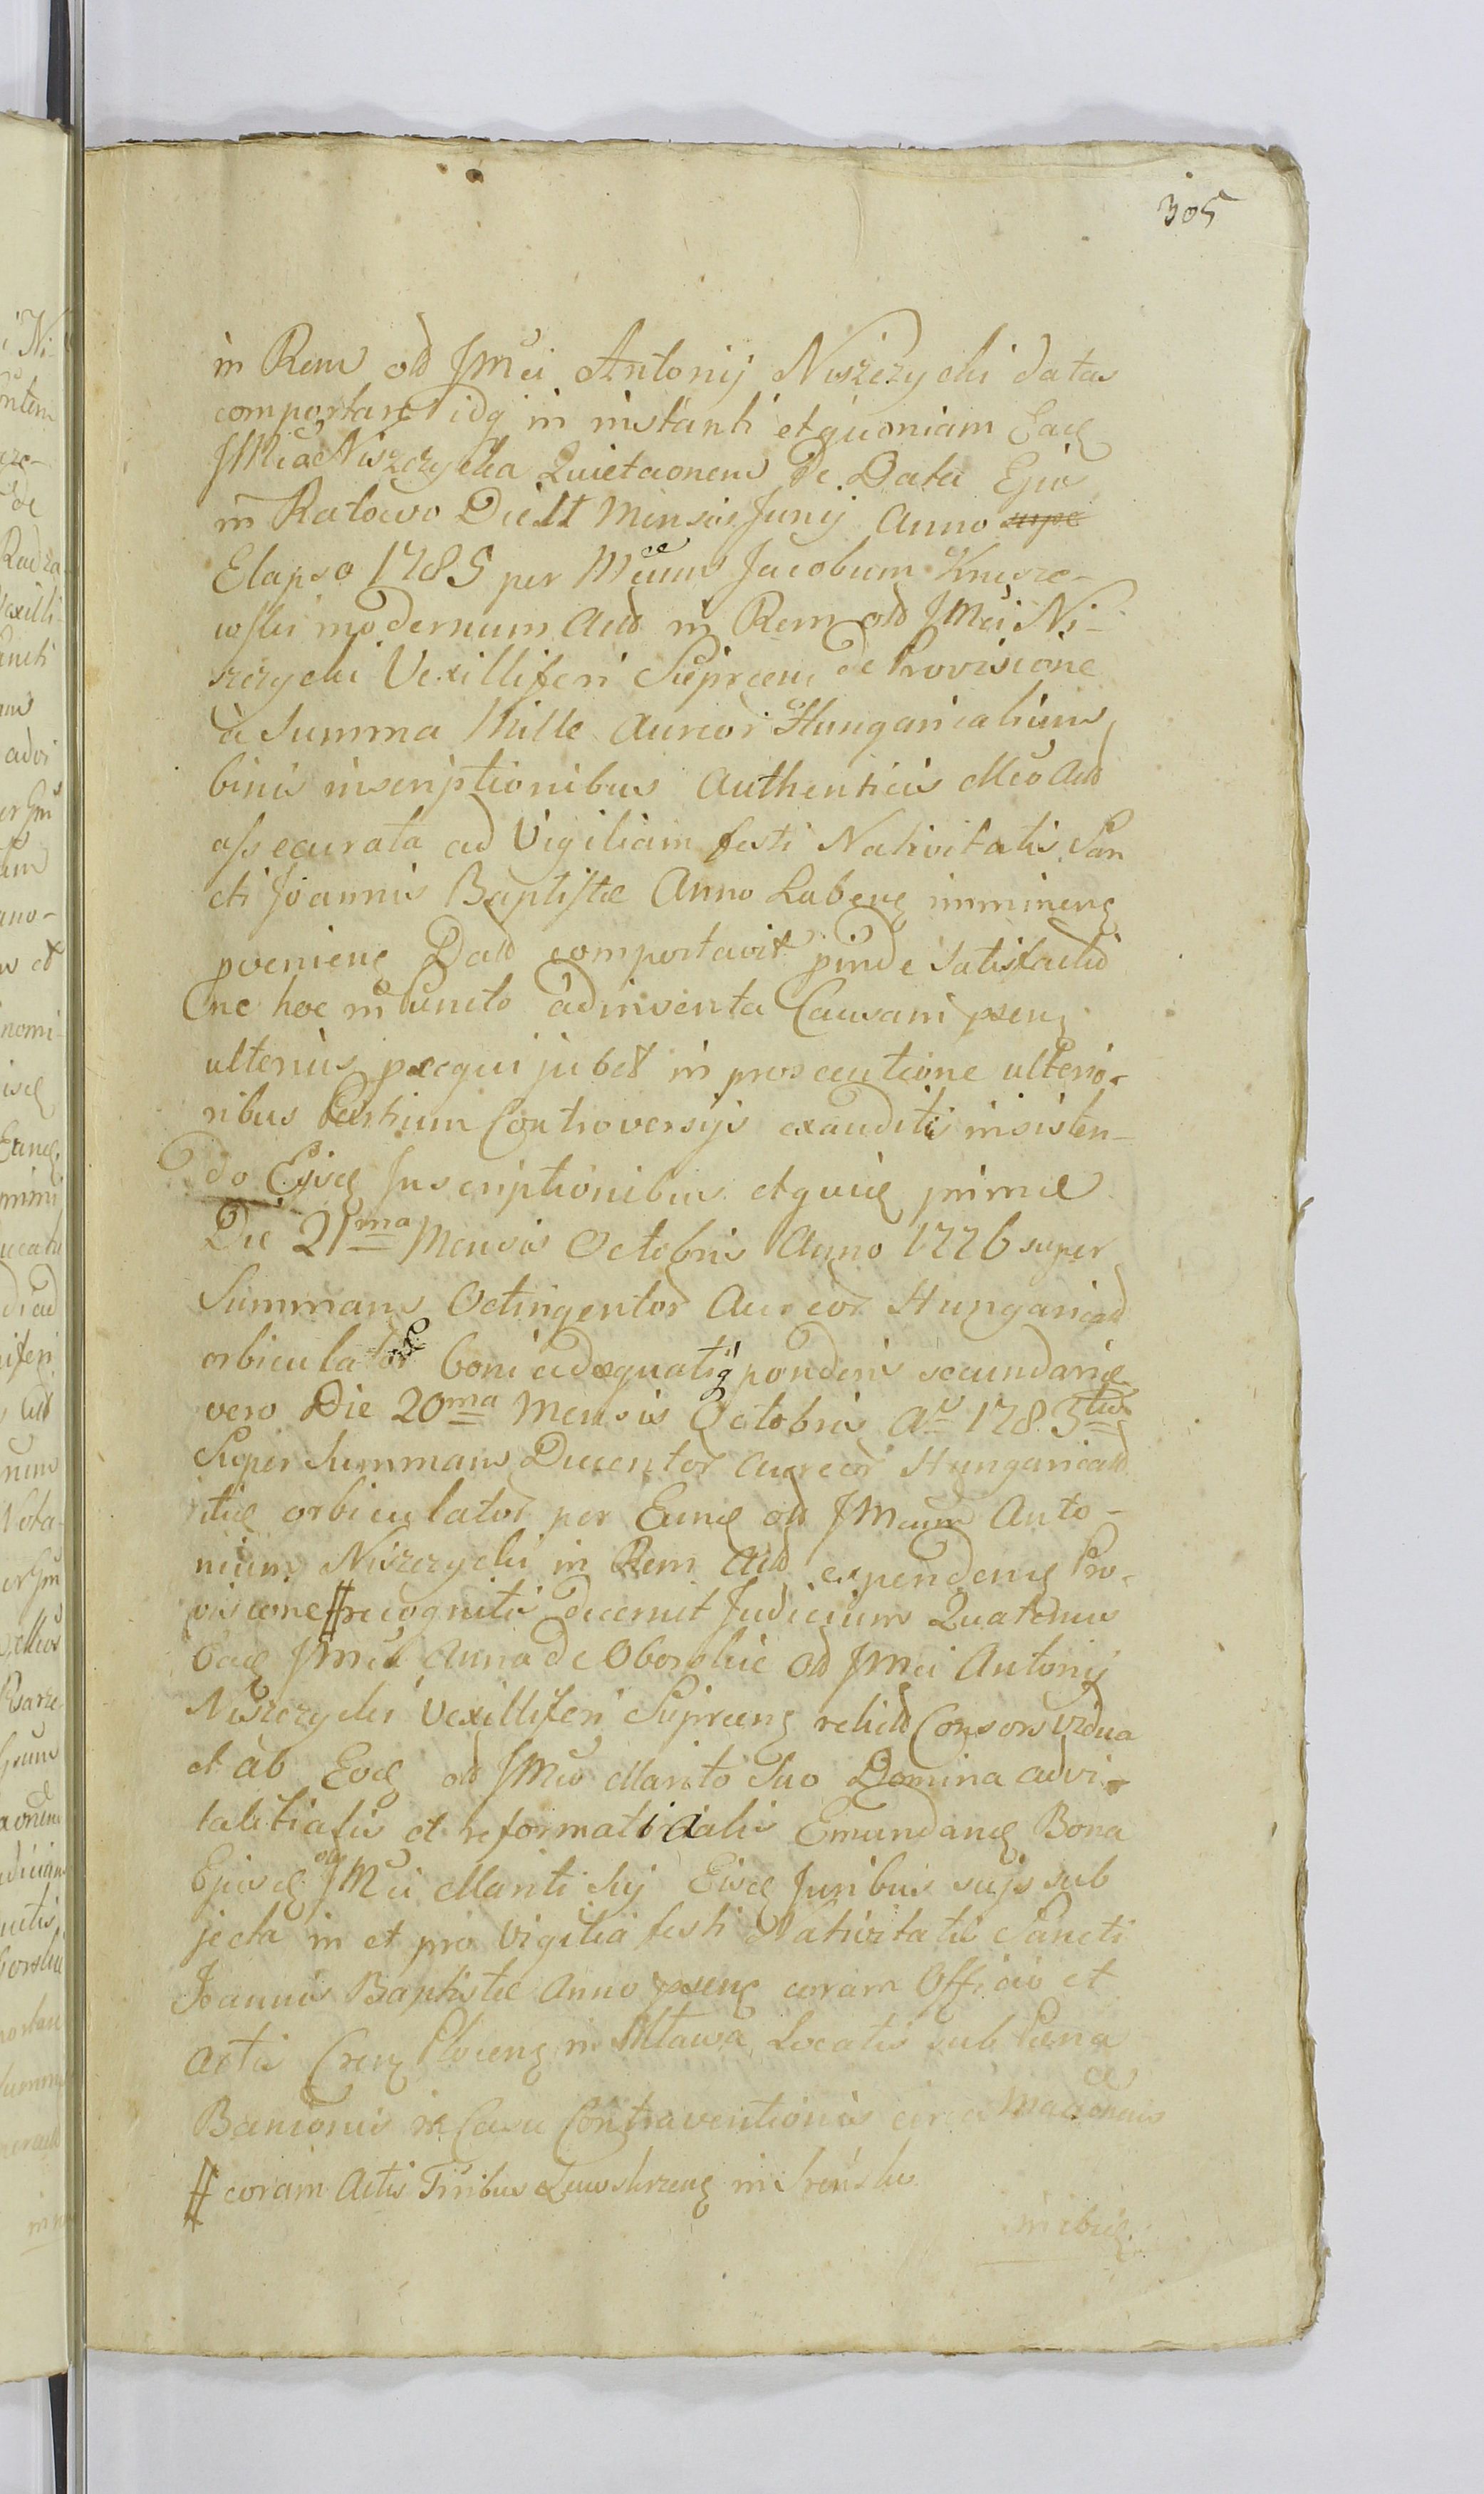 305
in Rem old JMci Antonij Niszczycki datas
comportaret idq in instanti et quoniam Eadg
JMca Niszczycka Quietaonem de Data Ejus
in Ratowo Die 11 Mensis Junij Anno supe
Elapso 1785 per Mcum Jacobum Knisze-
wski modernum Actd in Rem old JMci Ni-
szczycki Vexilliferi Supreeni de Provisione
à Summa Mille Aureor Hungaricalium
binis inscriptionibus Authenticis Mco Actd
assecurata ad Vigiliam festi Nativitatis San
cti Joannis Baptistæ Anno Labeng imming
pveniens Datd comportavit pinde Satisfactio
ne hoc in Puncto adinventa Causam pseng
ulterius psequi jubet in prosecutione ulterio-
ribus Partium Controversijs exauditis insisten-
do Eisdg Inscriptionibus et quidg primæ
Die 21ma Mensis Octobris Anno 1776 super
Summam Octingentor Aureor Hungaricald
orbiculator boni adæquatiq ponderis secundariæ
vero Die 20ma Mensis Octobris Ao 1785tus
Super Summam Ducentor Aureor Hungaricald
itidg orbiculator per Eundg old JMcum Anto-
nium Niszczycki in Rem Actd expendeng Pro-
visione # recognitis decernit Judicium Quatenus
Eadg JMca Anna de Oborskie old JMci Antonij
Niszczycki Vexilliferi Supreeng relictd Consors vidua
et ab Eodg old JMco Marito Suo Domina advi-
talitiatis et reformatorialis Emundandg Bona
Ejusdg old JMci Mariti Sui Eisdg Juribus suis sub
jecta in et pro Vigilia festi Nativitatis Sancti
Joannis Baptistæ Anno pseng coram Officio et
Actis Creng Ploceng in Mława Locatis sub Pæna
Banionis in Casu Contraventionis circa
# coram Actis Trribus Zawskrzeng in Sreńsk